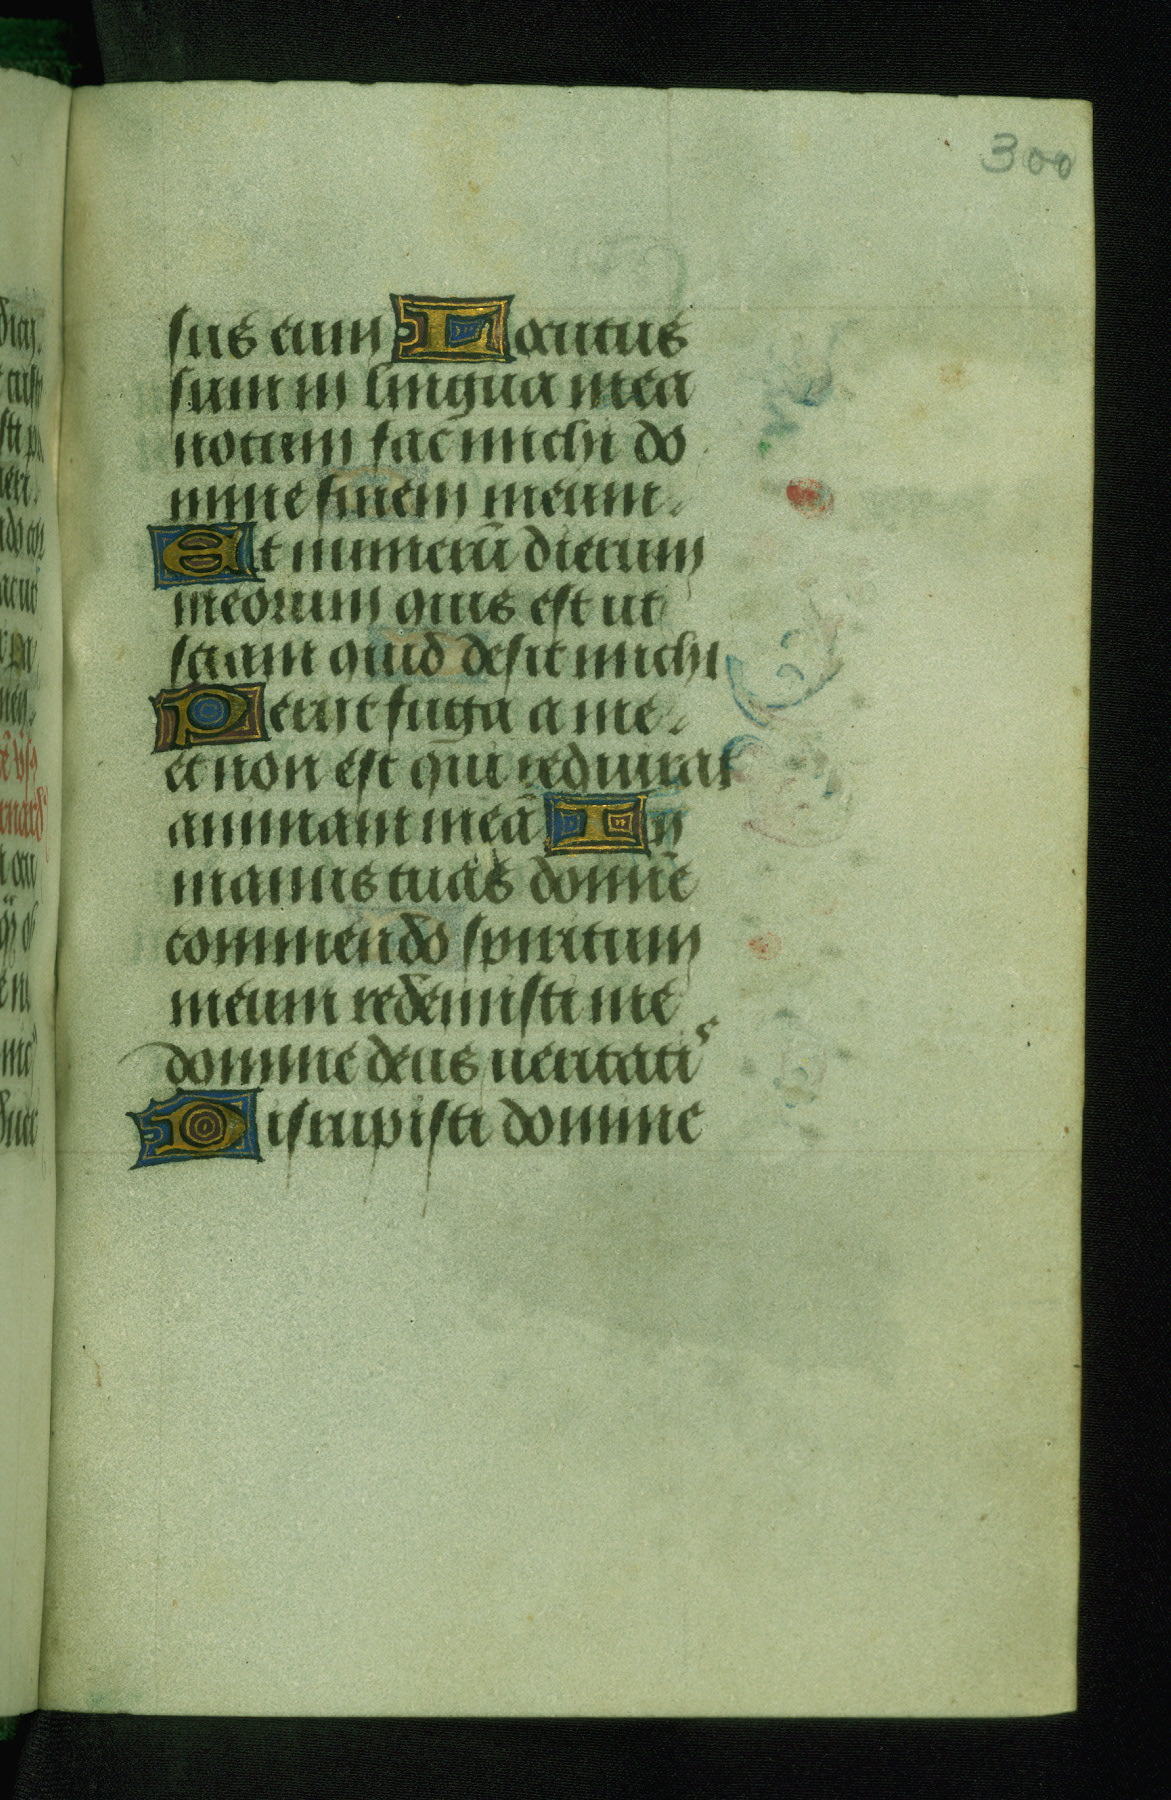 300
sus eum Locutus
sum in lingua mea
notum fac michi do
mine finem meum.
Et numerū dierum
meorum quis est ut
sciam quid desit michi
Periit fuga a me.
et non est qui requirat
animam meā In
manus tuas domīe
commendo spiritum
meum redemisti me
domine deus ueritatis
Disrupisti domine